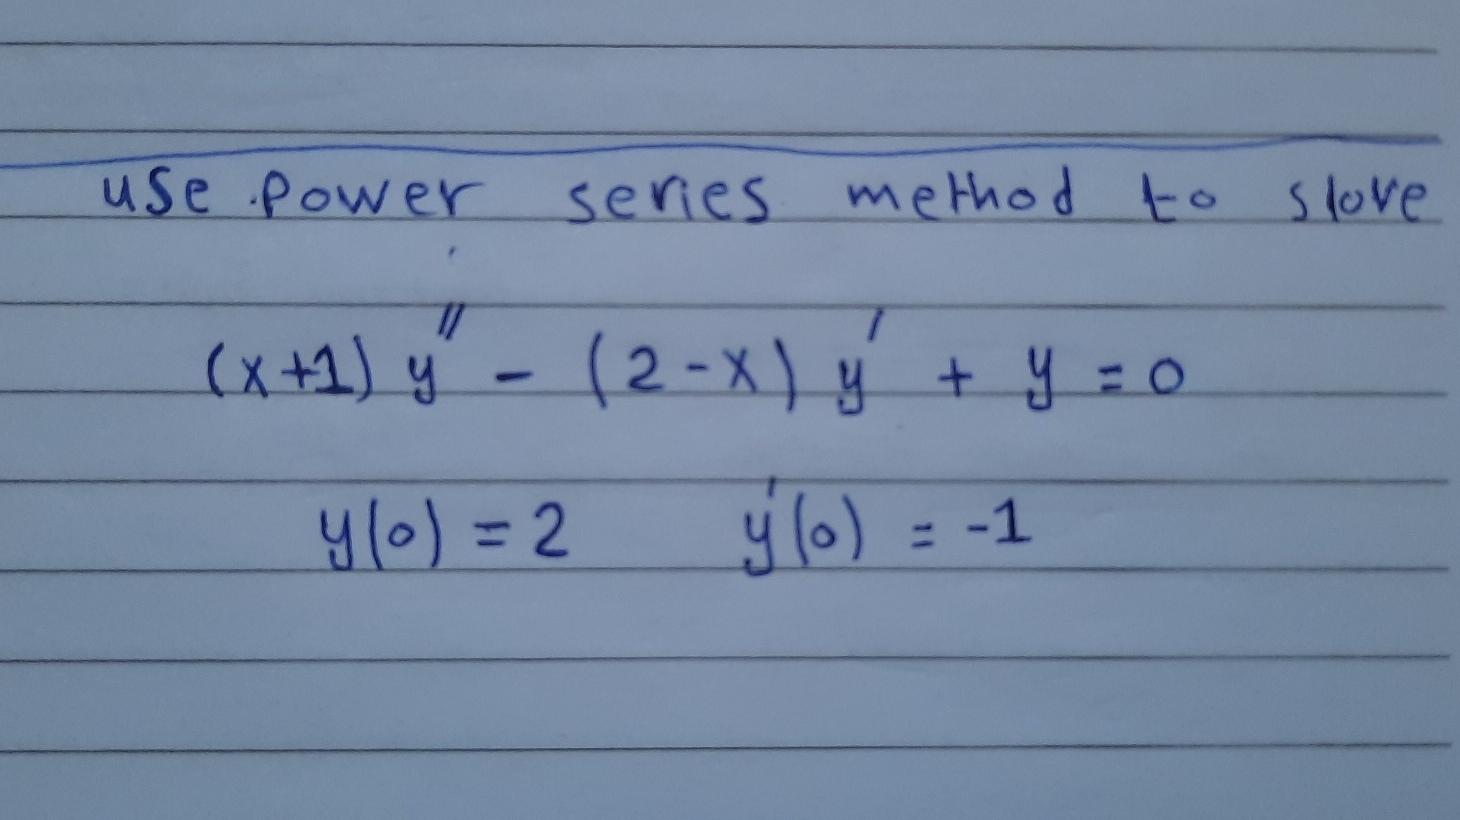 use power series method to slove
(x+1) y'' - (2-x) y' + y = 0
y(0) = 2 y'(0) = -1